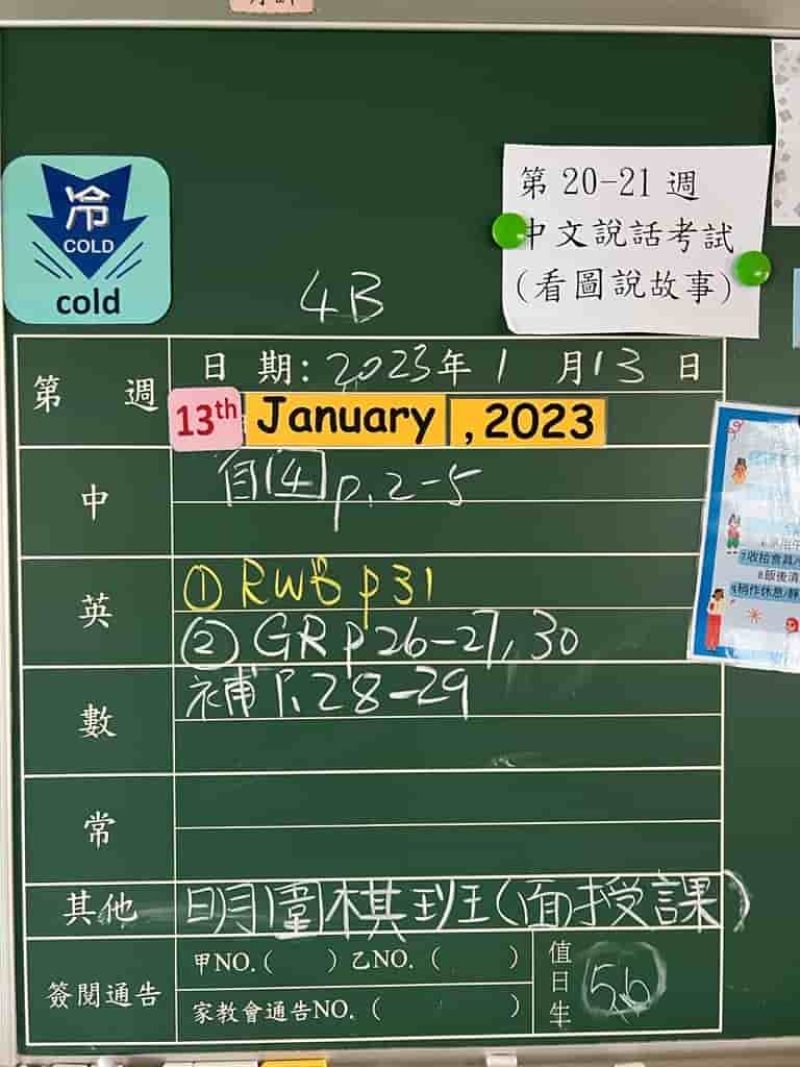 冷
COLD
cold
第20-21週
中文說話考試
(看圖說故事)
4B
第 週
日 期:2023年1月13日
13th January ,2023
中
自④p.2-5
英
①RWB p31
②GR p26-27,30
數
補P.28-29
常
其他
明圍棋班(面授課)
簽閱通告
甲NO.( )乙NO.( )
家教會通告NO.( )
值日生
5,6
收拾食具/
飯後清
稍作休息/靜